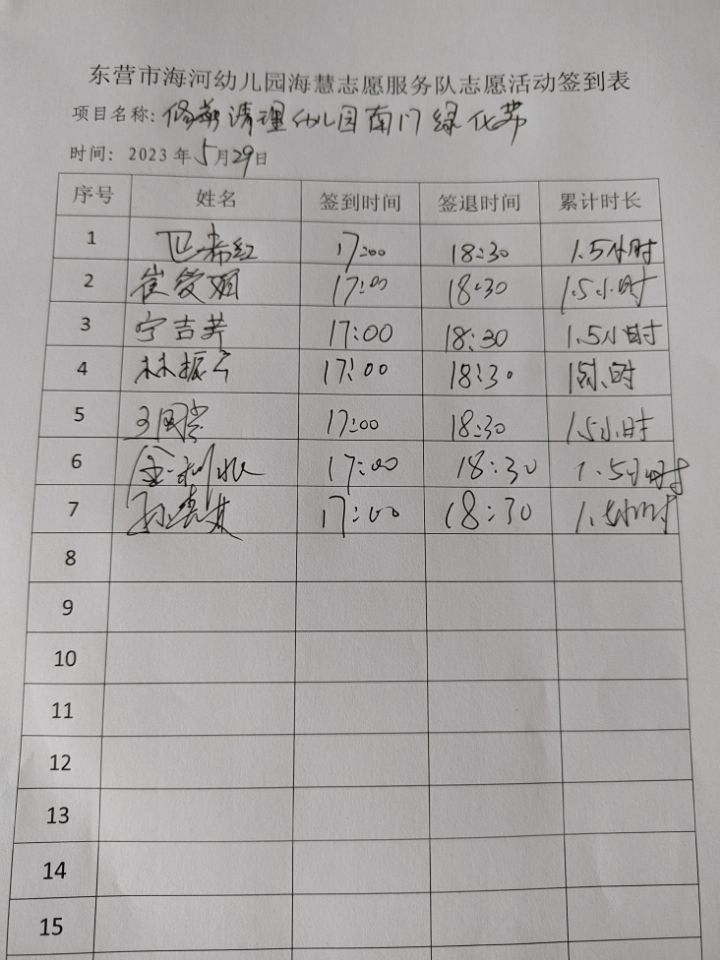 东营市海河幼儿园海慧志愿服务队志愿活动签到表
项目名称:修剪清理幼儿园南门绿化带
时间: 2023年5月29日
序号 姓名 签到时间 签退时间 累计时长
1 17:00 18:30 1.5小时
2 崔爱娟 17:00 18:30 1.5小时
3 宁吉芹 17:00 18:30 1.5小时
4 林振 17:00 18:30 小时
5 王 17:00 18:30 1.5小时
6 金利 17:00 18:30 1.5小时
7 孙 17:00 18:30 1.5小时
8
9
10
11
12
13
14
15